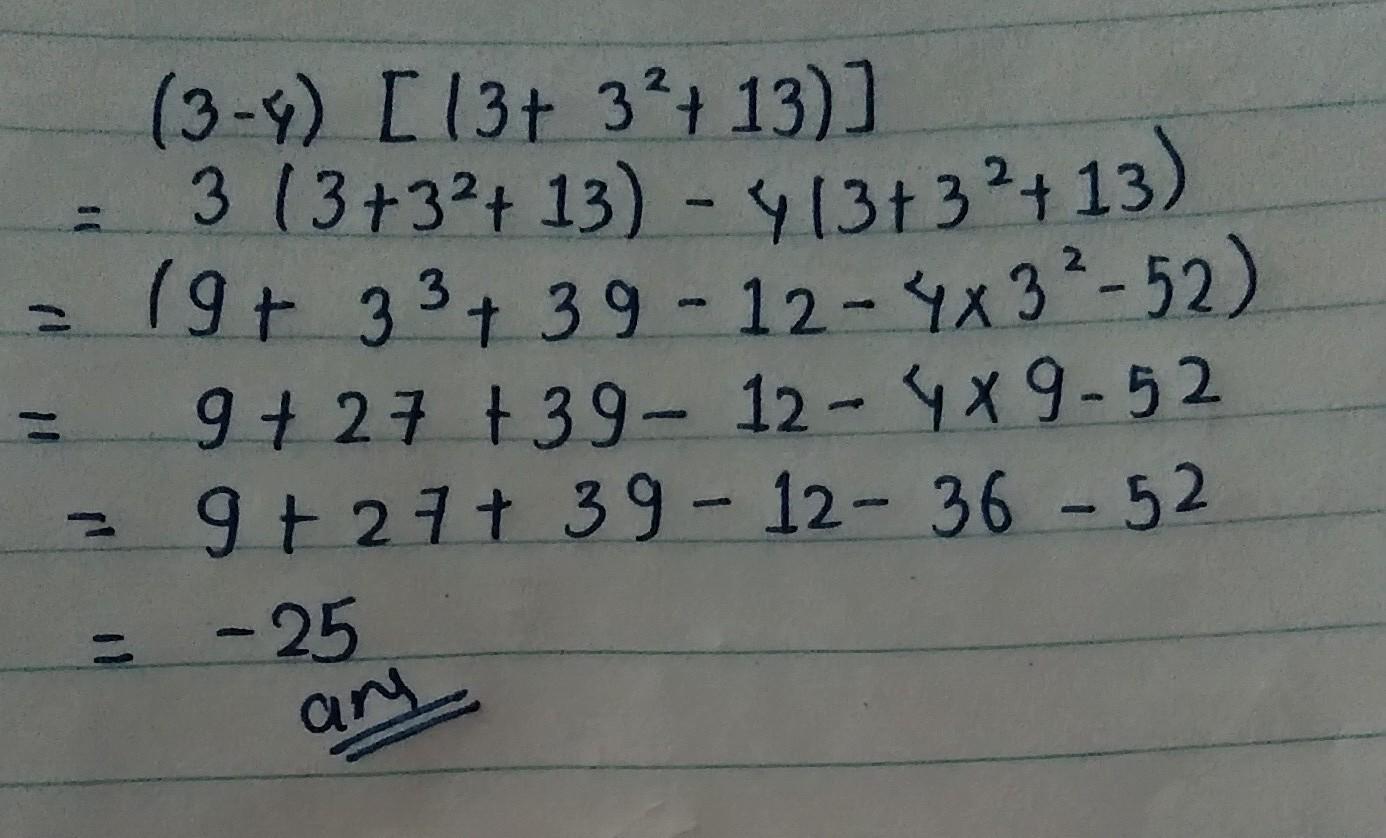 (3-4) [(3+ 3²+ 13)]
= 3 (3+3²+ 13) - 4(3+3²+13)
= (9+ 3³+ 39 - 12 - 4x3²-52)
= 9+27 +39- 12- 4x9-52
= 9+27+ 39- 12- 36 -52
= -25
ans